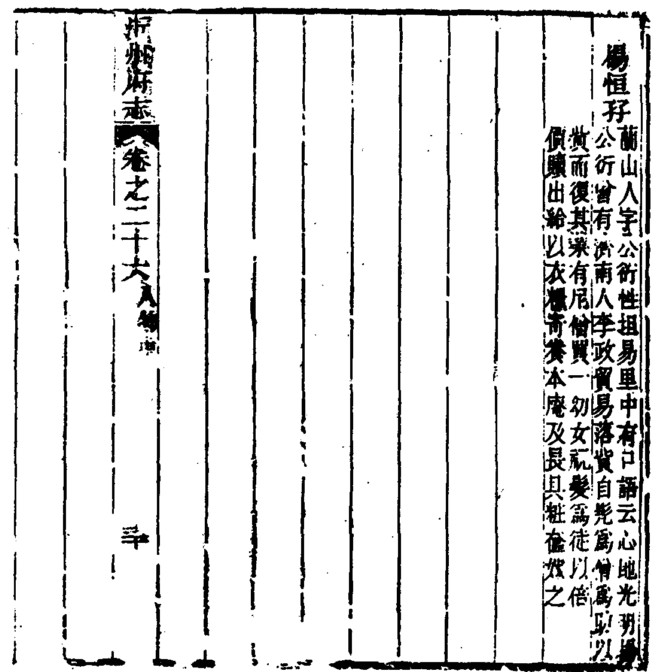 楊恒
蘭山人字公衍性坦易里中有口語云心地光明楊
公衍曾有濟南人李政貿易落貲自髠爲僧爲助以
貲而復其業有尼僧買一幼女祝髮爲徒以倍
價贖出給以衣糧寄養本庵及長具粧奩嫁之
沂州府志 卷之二十六 人物 中 三十